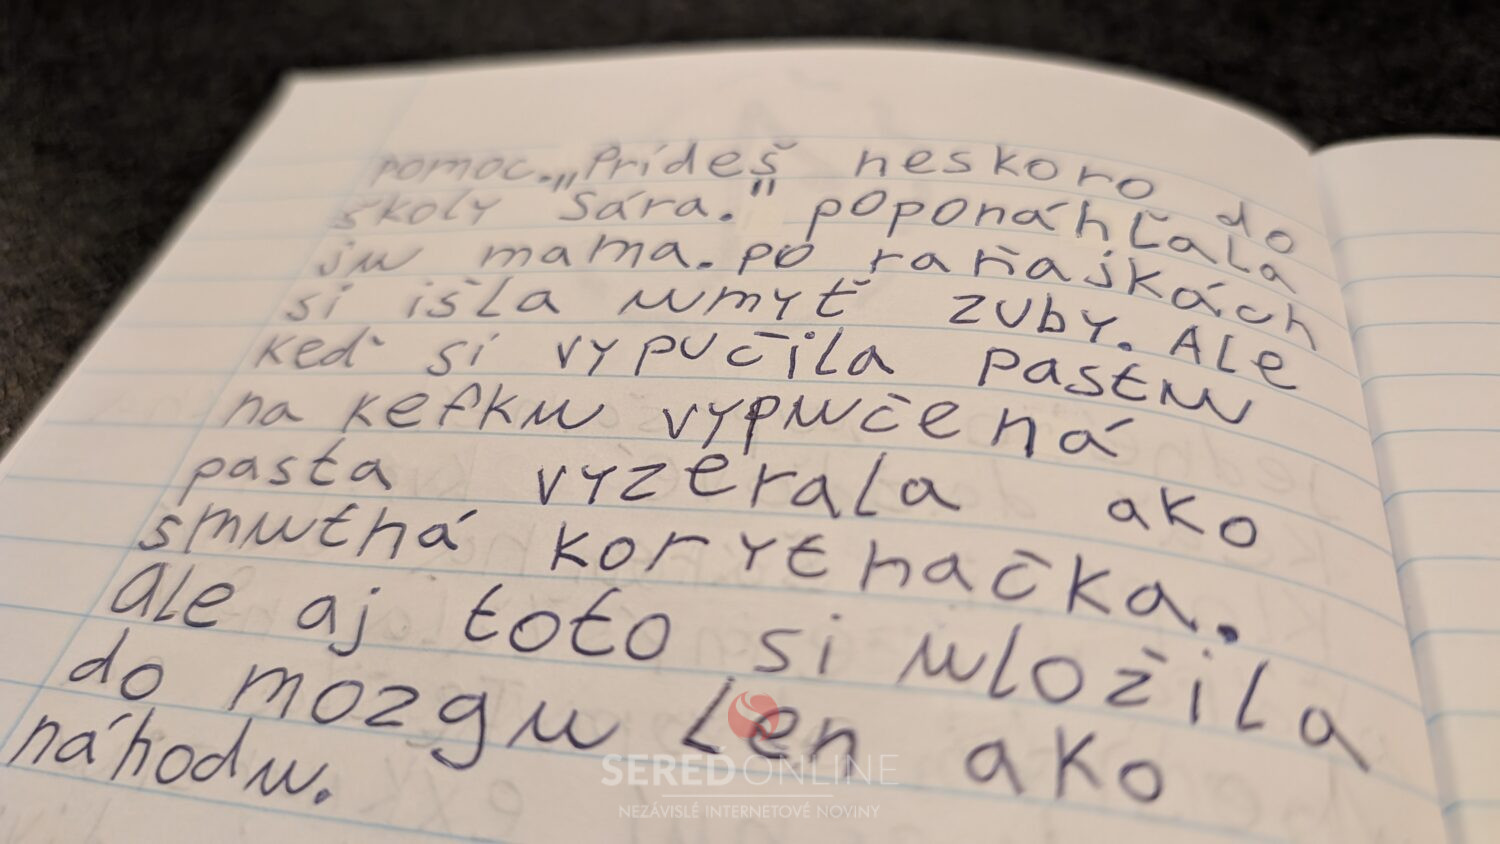 pomoc. „Prídeš neskoro do
školy Sára." poponáhľala
ju mama. po raňajkách
si išla umyť zuby. Ale
keď si vypučila pastu
na kefku vypučená
pasta vyzerala ako
smutná korytnačka.
Ale aj toto si uložila
do mozgu Len ako
náhodu.
SEREDONLINE
NEZÁVISLÉ INTERNETOVÉ NOVINY